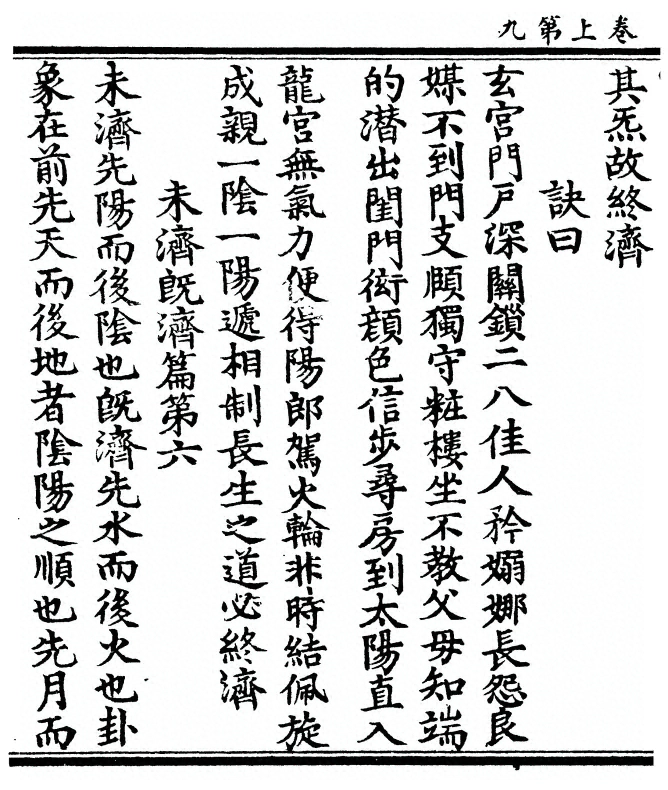 卷上第九
其炁故終濟
訣曰
玄宮門戸深關鎖二八佳人矜嫋娜長怨良
媒不到門支頤獨守粧樓坐不教父毋知端
的潜出閨門衒顔色信步尋房到太陽直入
龍宮無氣力便得陽郎駕火輪非時結佩旋
成親一陰一陽遞相制長生之道必終濟
未濟旣濟篇第六
未濟先陽而後陰也旣濟先水而後火也卦
象在前先天而後地者陰陽之順也先月而